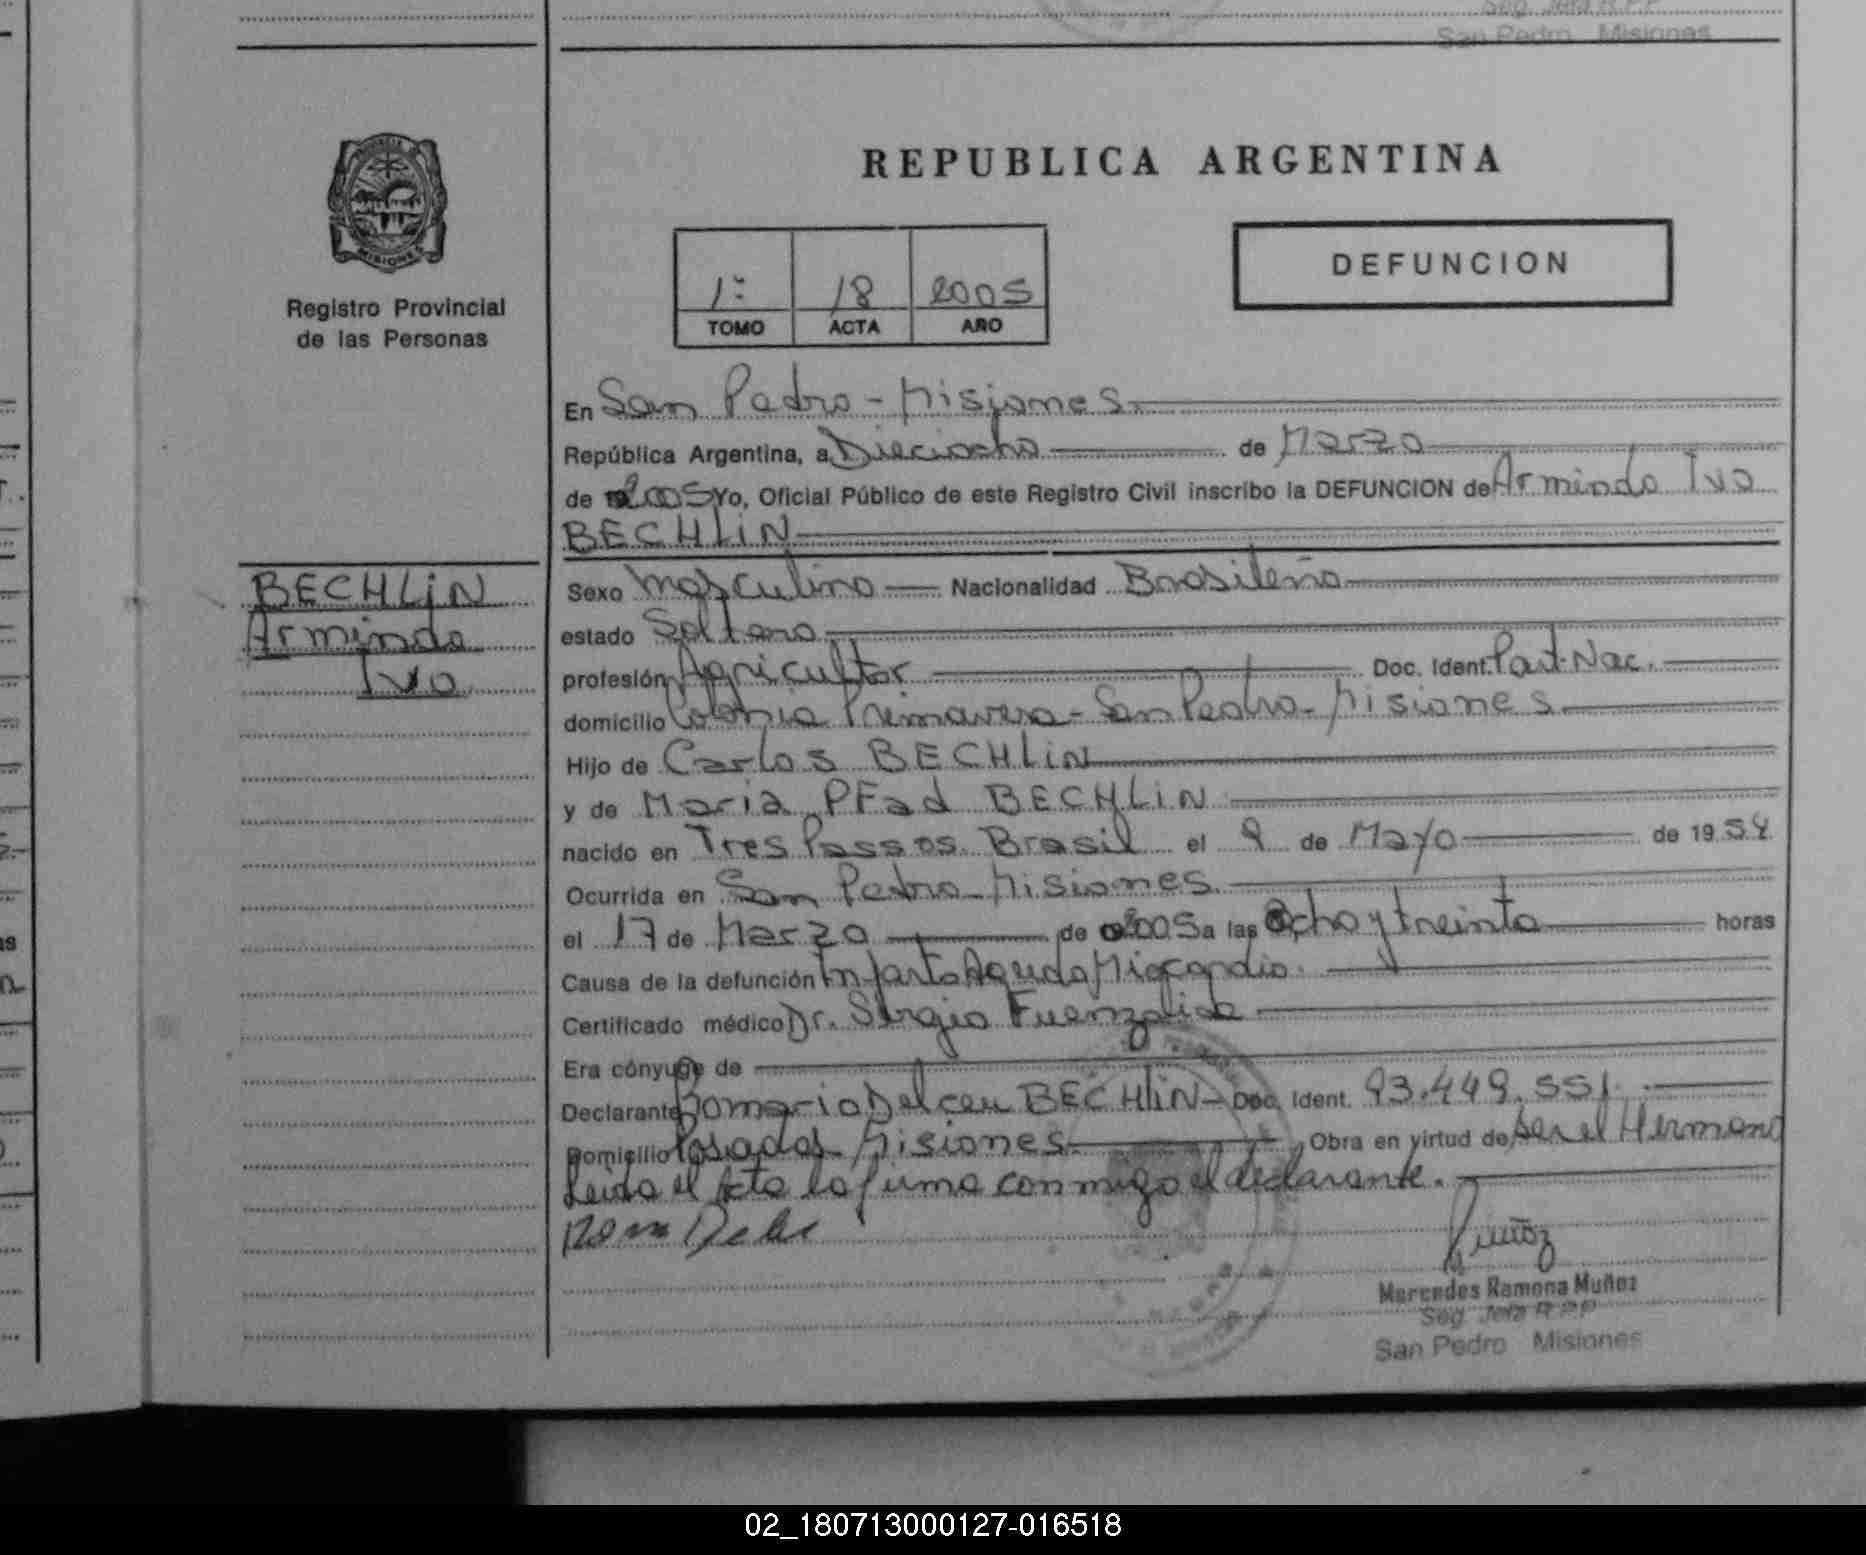 Seg. Jefa R.P.P
San Pedro Misiones
REPUBLICA ARGENTINA
DEFUNCION
1º 18 2005
TOMO ACTA AÑO
PROVINCIA DE
MISIONES
Registro Provincial
de las Personas
En San Pedro - Misiones.
República Argentina, a Dieciocho de Marzo
de 2005 Yo, Oficial Público de este Registro Civil inscribo la DEFUNCION de Armindo Ivo
BECHLiN
BECHLiN
Armindo
Ivo
Sexo Masculino Nacionalidad Brasileño
estado Soltero
profesión Agricultor Doc. Ident. Part. Nac.
domicilio Colonia Primavera - San Pedro - Misiones
Hijo de Carlos BECHLiN
y de Maria PFad BECHLiN
nacido en Tres Passos Brasil el 9 de Mayo de 1954
Ocurrida en San Pedro - Misiones
el 17 de Marzo de 2005 a las Ocho y treinta horas
Causa de la defunción Infarto Agudo Miocardio.
Certificado médico Dr. Sergio Fuenzalida
Era cónyuge de
Declarante Romario Delceu BECHLiN Doc. Ident. 93.449.551.
Domicilio Posadas Misiones Obra en virtud de Ser el Hermano
Leida el Acta la firma conmigo el declarante.
Muñoz
Mercedes Ramona Muñoz
Seg. Jefa R.P.P
San Pedro Misiones
02_180713000127-016518